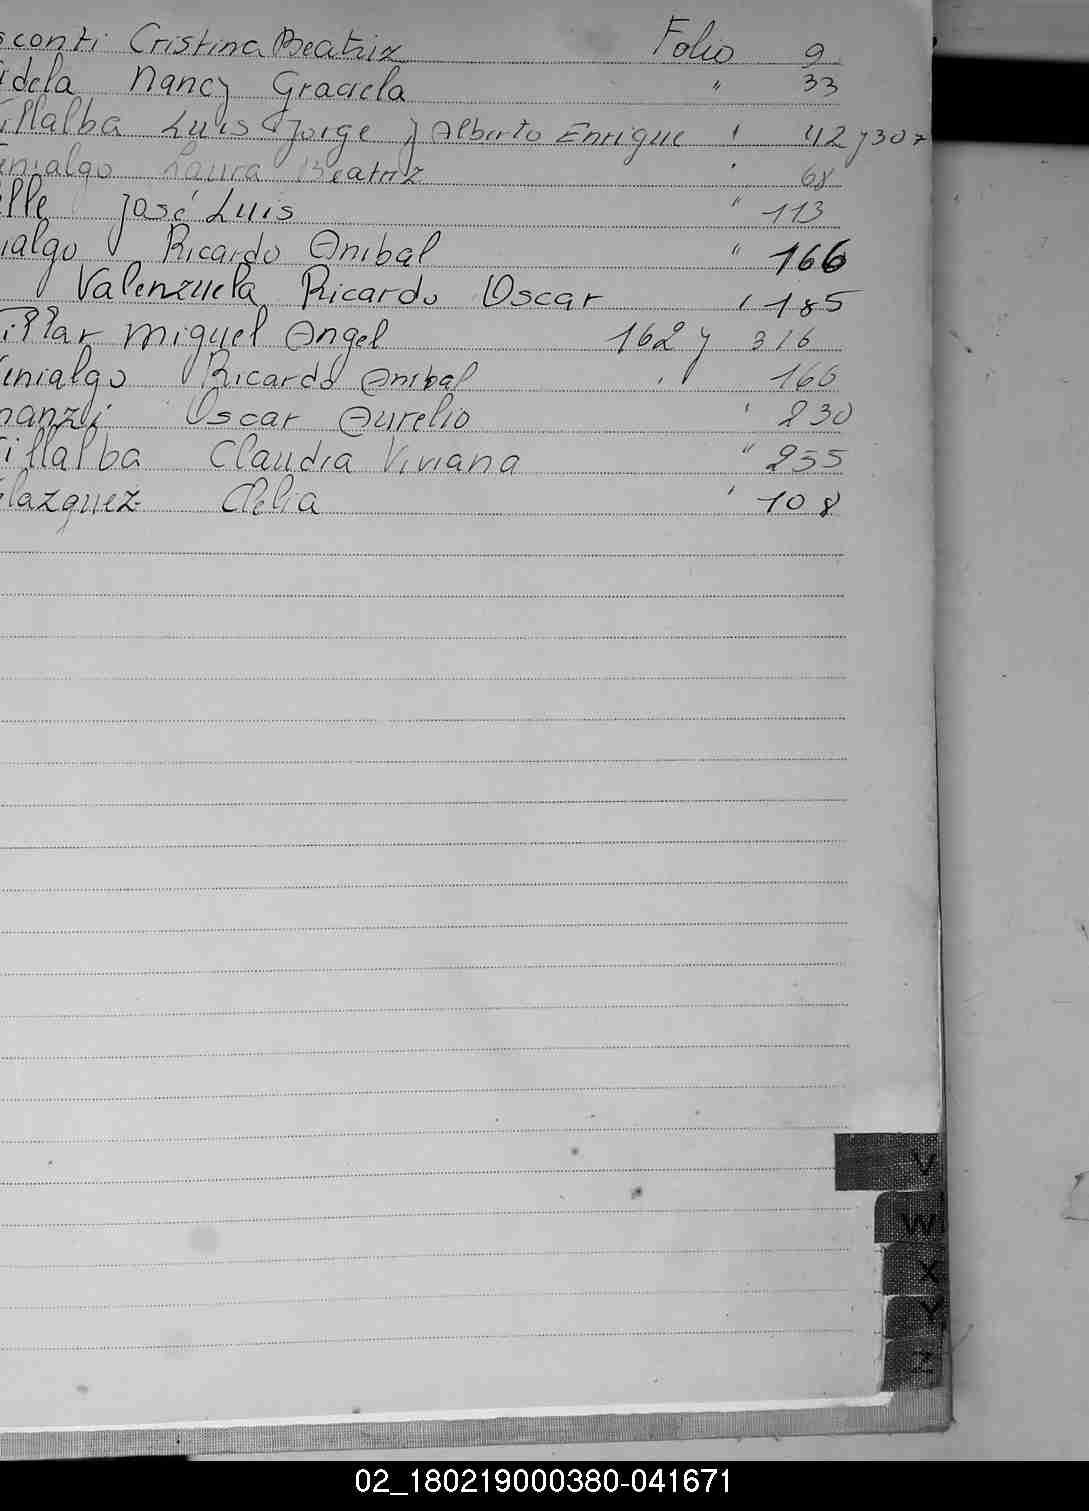 sconti Cristina Beatriz Folio 9
idela Nancy Graciela " 33
illalba Luis Jorge y Alberto Enrique " 42 y 307
enialgo Laura Beatriz " 68
elle José Luis " 113
ialgo Ricardo Anibal " 166
Valenzuela Ricardo Oscar " 185
illar Miguel Angel 162 y 316
enialgo Ricardo Anibal " 166
manzu Oscar Aurelio " 230
illalba Claudia Viviana " 255
elazquez Clelia " 108
V
W
X
Y
Z
02_180219000380-041671